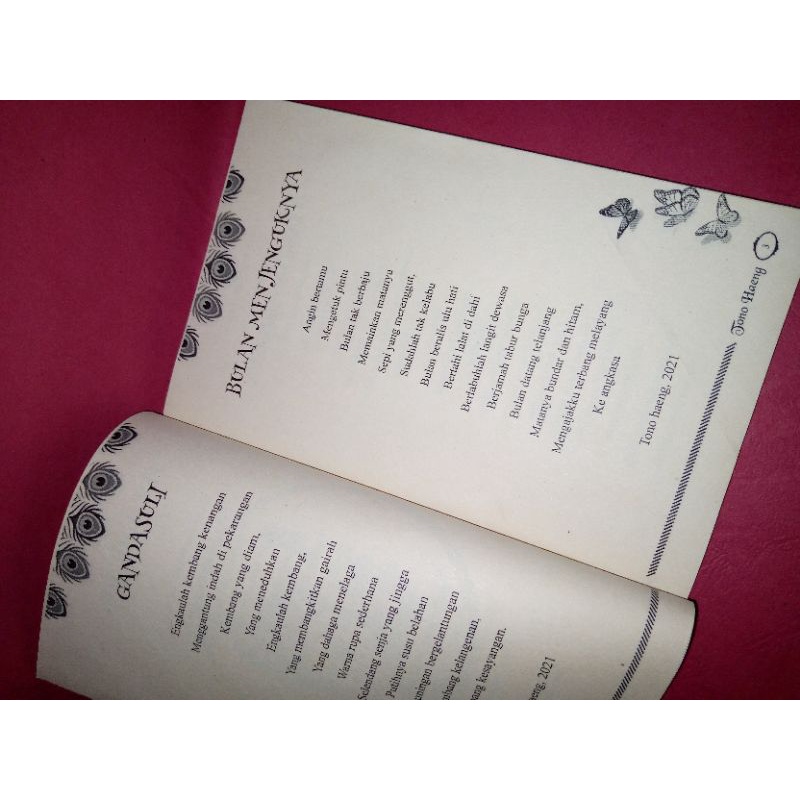 GANDASULI
Engkaulah kembang kenangan
Menggantung indah di pekarangan
Kembang yang diam,
Yang meneduhkan
Engkaulah kembang,
Yang membangkitkan gairah
Yang dahaga menelaga
Warna rupa sederhana
Selendang senja yang jingga
Putihnya susu belahan
bergelantungan
kelangenan,
kesayangan.
2021
BULAN MENJENGUKNYA
Angin bertamu
Mengetuk pintu
Bulan tak berbaju
Memainkan matanya
Sepi yang merenggut,
Sudahlah tak kelabu
Bulan beralis ulu hati
Bertahi lalat di dahi
Berlabuhlah langit dewasa
Berjamah tabur bunga
Bulan datang telanjang
Matanya bundar dan hitam,
Mengajakku terbang melayang
Ke angkasa
Tono haeng, 2021
Tono Haeng